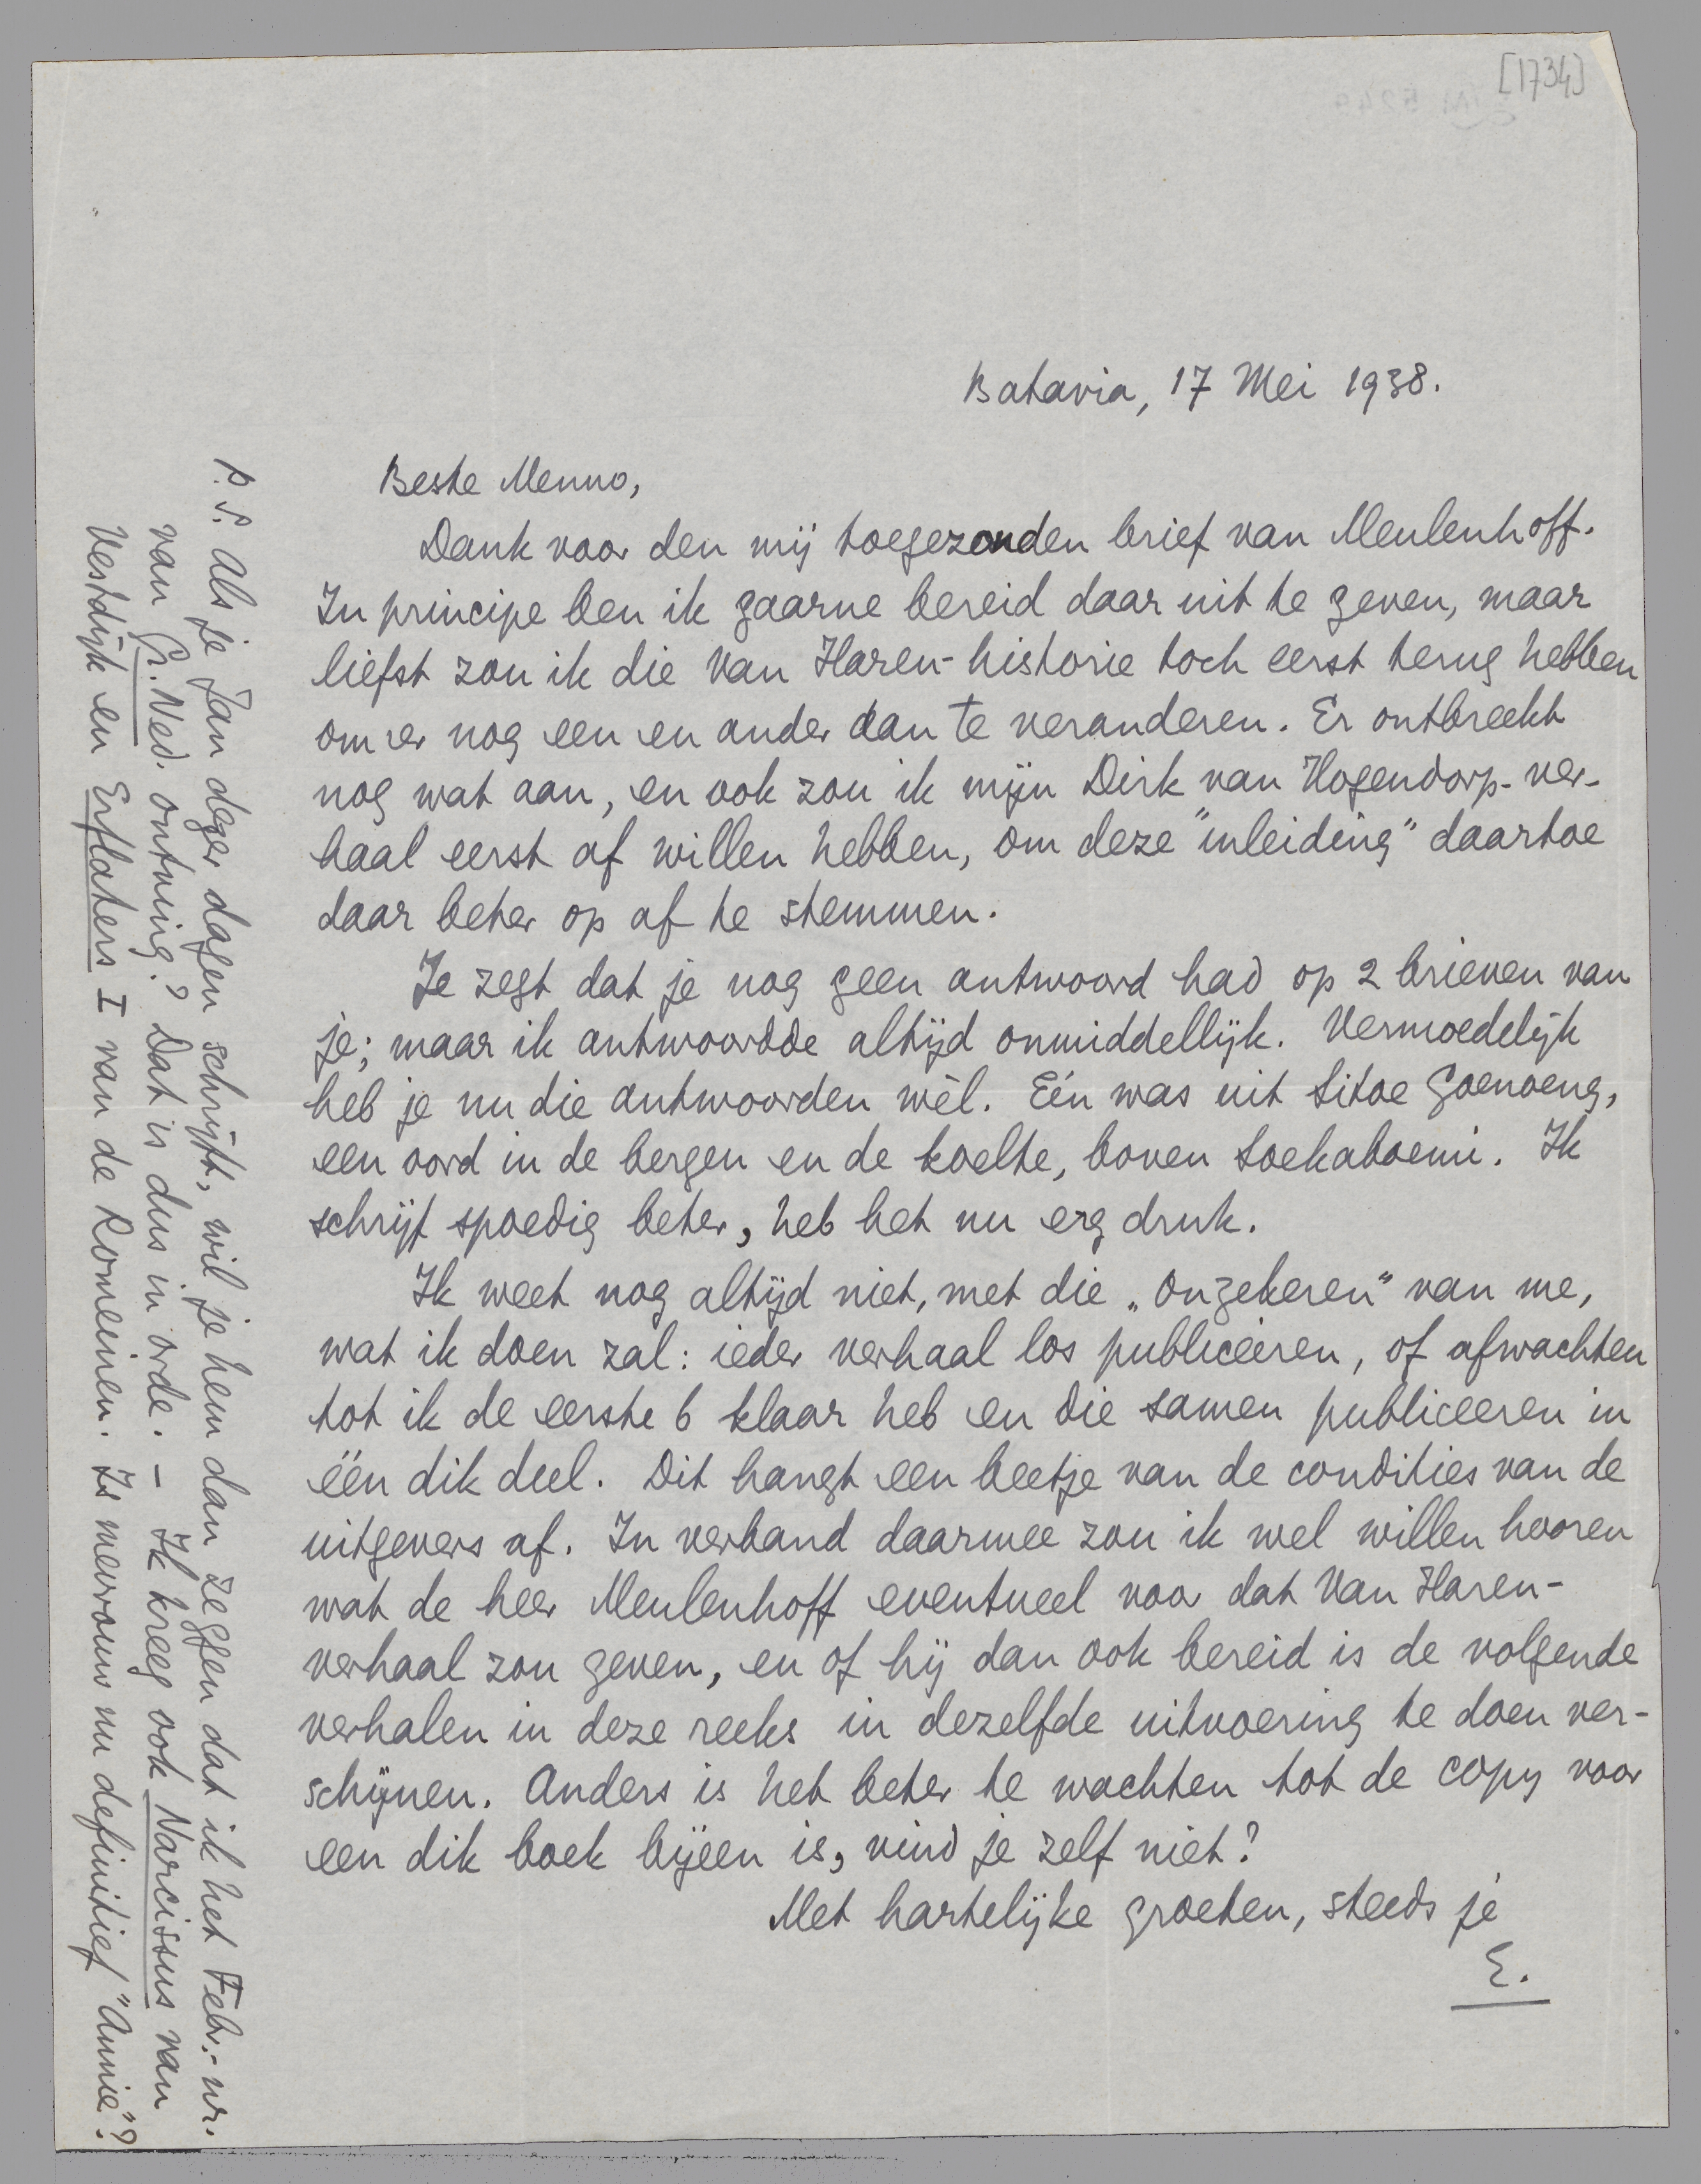 [1734]
Batavia, 17 Mei 1938.
Beste Menno,
Dank voor den mij toegezonden brief van Meulenhoff.
In principe ben ik gaarne bereid daar uit te geven, maar
liefst zou ik die Van Haren-historie toch eerst terug hebben
om er nog een en ander aan te veranderen. Er ontbreekt
nog wat aan, en ook zou ik mijn Dirk van Hogendorp-ver-
haal eerst af willen hebben, om deze "inleiding" daartoe
daar beter op af te stemmen.
Je zegt dat je nog geen antwoord had op 2 brieven van
je; maar ik antwoordde altijd onmiddellijk. Vermoedelijk
heb je nu die antwoorden wèl. Eén was uit Sitoe Goenoeng,
een oord in de bergen en de koelte, boven Soekaboemi. Ik
schrijf spoedig beter, heb het nu erg druk.
Ik weet nog altijd niet, met die „Onzekeren" van me,
wat ik doen zal: ieder verhaal los publiceeren, of afwachten
tot ik de eerste 6 klaar heb en die samen publiceeren in
één dik deel. Dit hangt een beetje van de condities van de
uitgevers af. In verband daarmee zou ik wel willen hooren
wat de heer Meulenhoff eventueel voor dat Van Haren-
verhaal zou geven, en of hij dan ook bereid is de volgende
verhalen in deze reeks in dezelfde uitvoering te doen ver-
schijnen. Anders is het beter te wachten tot de copy voor
een dik boek bijeen is, vind je zelf niet?
Met hartelijke groeten, steeds je
E.
P.S. Als je Jan dezer dagen schrijft, wil je hem dan zeggen dat ik het Febr.-nr.
van Gr. Ned. ontving? Dat is dus in orde. – Ik kreeg ook Narcissus van
Vestdijk en Erflaters I van de Romeinen. Is mevrouw nu definitief "Annie"?